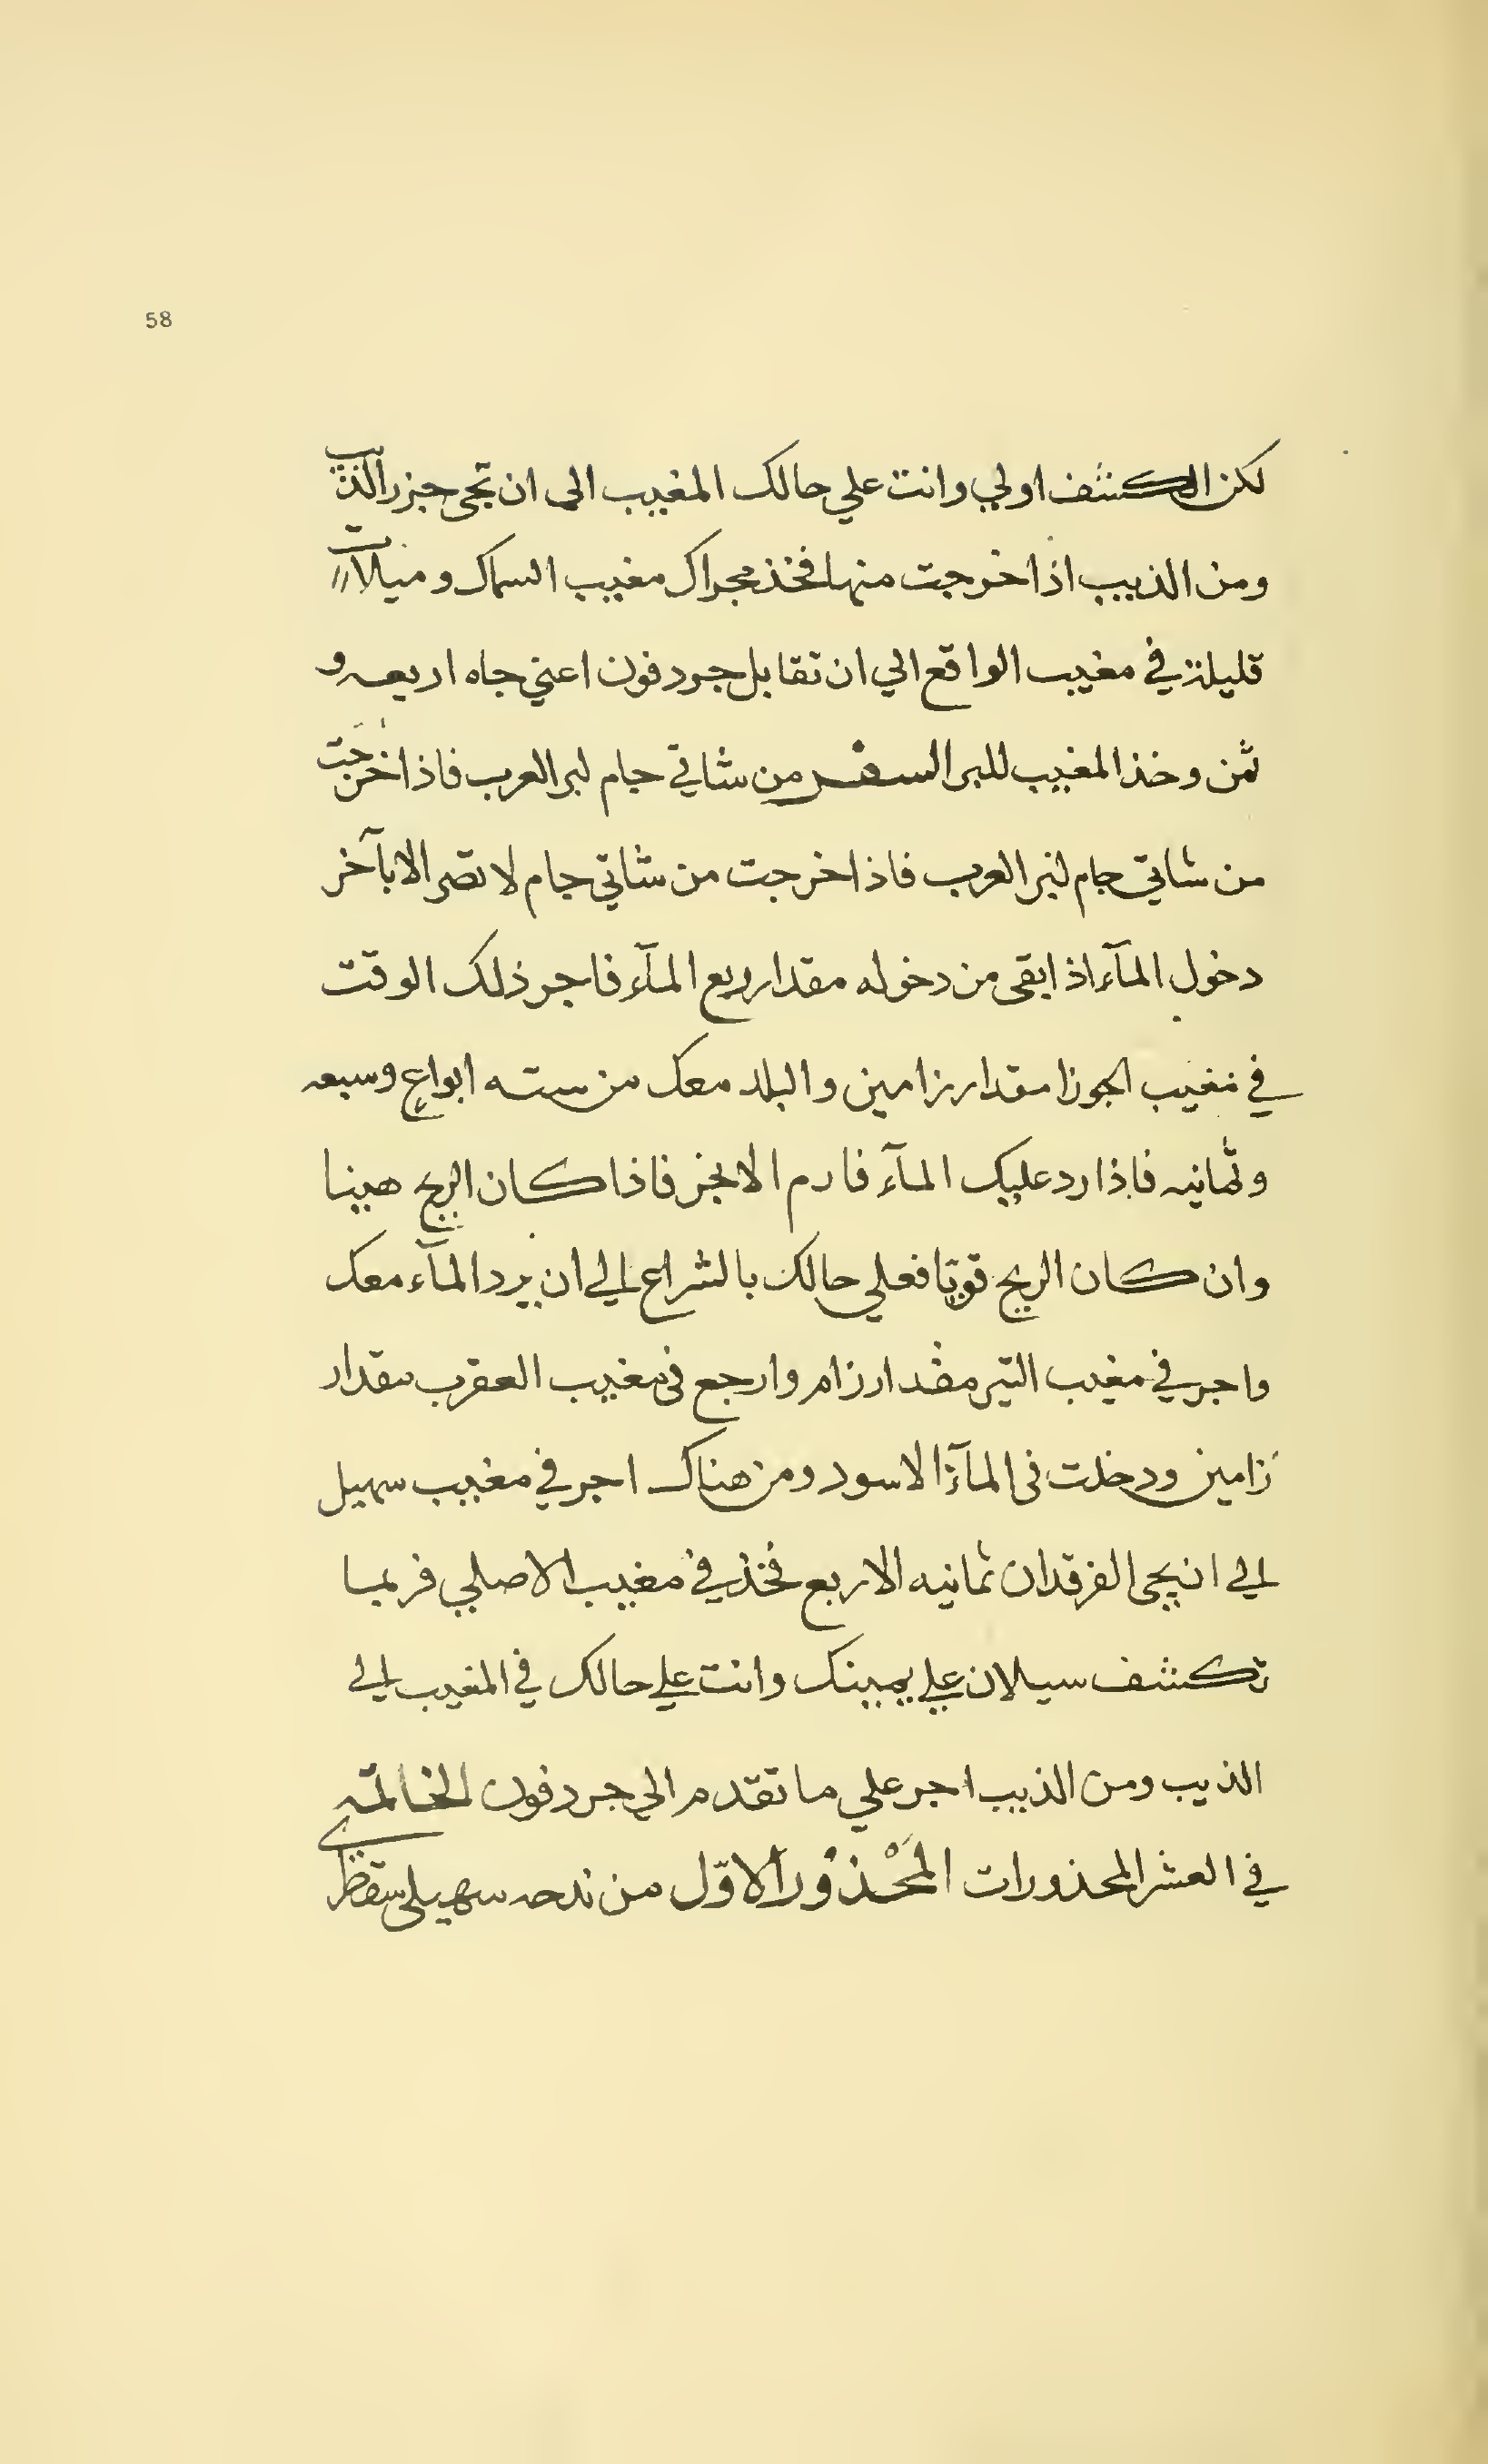 58
لكن الكشف اولي وانت علي حالك المغيب الى ان تجى جزر الذيب
ومن الذيب اذا خرجت منها فخذ مجراك مغيب السماك وميلات
قليلة في مغيب الواقع الي ان تقابل جردفون اعني جاه اربعه و
ثمن وخذ المغيب للبر السفر من شاتي جام لبر العرب فاذا خرجت
من شاتي جام لبر العرب فاذا خرجت من شاتي جام لا تصر الا بآخر
دخول المآء اذ ابقى من دخوله مقدار ربع المآء فاجر ذلك الوقت
في مغيب الجوزا مقدار زامين والبلد معك من سته ابواع وسبعه
وثمانيه فاذا رد عليك المآء فارم الانجر فاذا كان الريح هينا
وان كان الريح قويًا فعلي حالك بالشراع الي ان يرد المآء معك
واجر في مغيب التير مقدار زام وارجع فى مغيب العقرب مقدار
زامين ودخلت فى المآء الاسود ومن هناك اجر في مغيب سهيل
الي ان يجى الفرقدان ثمانيه الا ربع فخذ في مغيب الاصلي فربما
تكشف سيلان علي يمينك وانت علي حالك في المغيب الي
الذيب ومن الذيب اجر علي ما تقدم الي جردفون الخاتمه
في العشر المحذورات المَحْذُور الاوّل من ندحه سهيلي سقطر